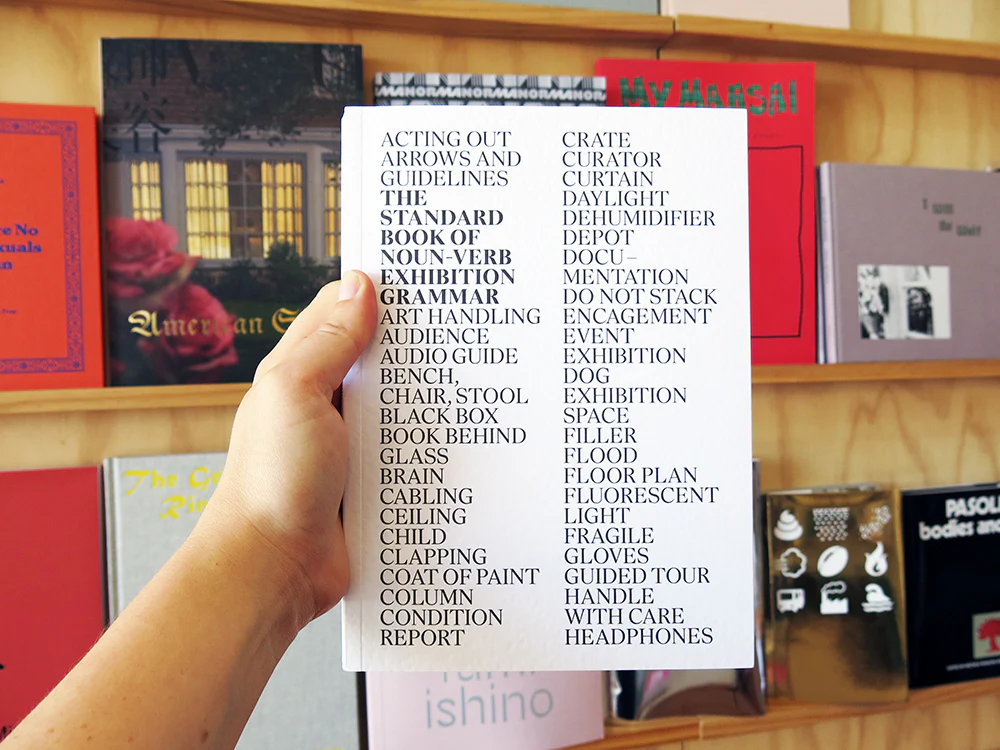 ACTING OUT
ARROWS AND
GUIDELINES
THE
STANDARD
BOOK OF
NOUN-VERB
EXHIBITION
GRAMMAR
ART HANDLING
AUDIENCE
AUDIO GUIDE
BENCH,
CHAIR, STOOL
BLACK BOX
BOOK BEHIND
GLASS
BRAIN
CABLING
CEILING
CHILD
CLAPPING
COAT OF PAINT
COLUMN
CONDITION
REPORT
CRATE
CURATOR
CURTAIN
DAYLIGHT
DEHUMIDIFIER
DEPOT
DOCU–
MENTATION
DO NOT STACK
ENCAGEMENT
EVENT
EXHIBITION
DOG
EXHIBITION
SPACE
FILLER
FLOOD
FLOOR PLAN
FLUORESCENT
LIGHT
FRAGILE
GLOVES
GUIDED TOUR
HANDLE
WITH CARE
HEADPHONES
American
MANORMANORMANORMANOR
No
The
bodies
ishino